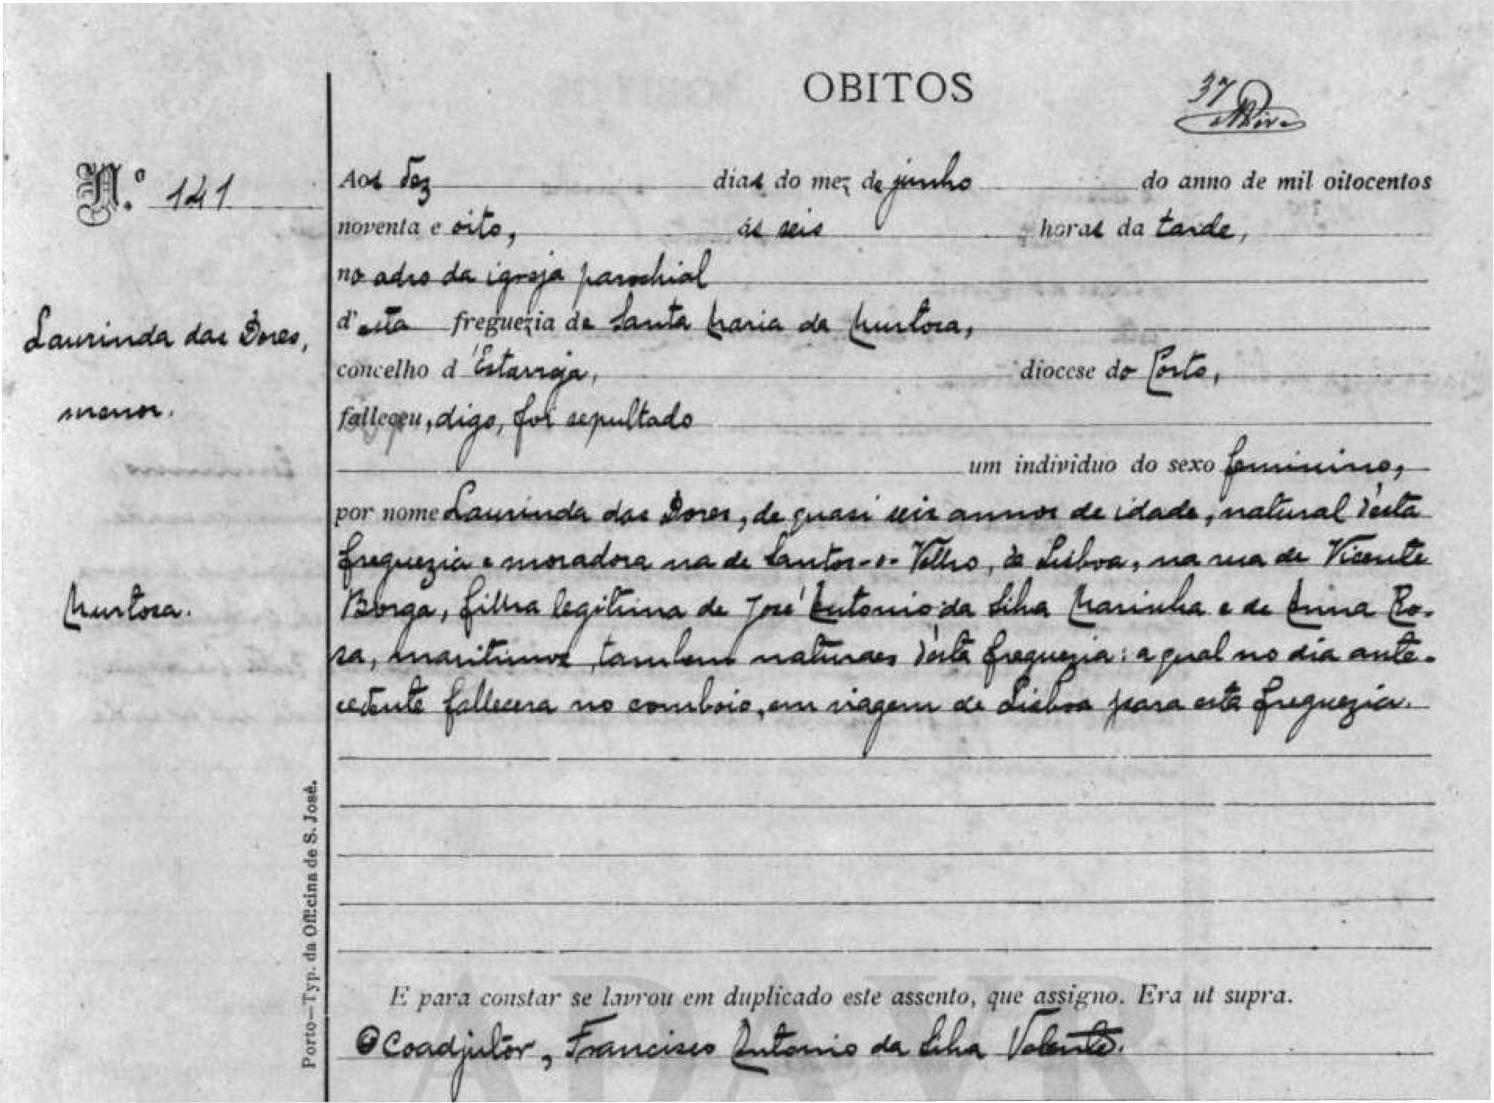 OBITOS
37
N.º 141
Aos dez dias do mez de junho do anno de mil oitocentos
noventa e oito, ás seis horas da tarde,
no adro da igreja parochial
d'esta freguezia de Santa Maria da Murtosa,
Laurinda das Dores,
concelho d'Estarreja, diocese do Porto,
menor.
falleceu, digo, foi sepultado
um individuo do sexo feminino,
por nome Laurinda das Dores, de quasi seis annos de idade, natural d'esta
freguezia e moradora na de Santos-o-Velho, de Lisboa, na rua de Vicente
Murtosa.
Borga, filha legitima de José Antonio da Silva Marinha e de Anna Ro-
sa, maritimos, tambem naturaes d'esta freguezia: a qual no dia ante-
cedente fallecera no comboio, em viagem de Lisboa para esta freguezia.
Porto—Typ. da Officina de S. José.
E para constar se lavrou em duplicado este assento, que assigno. Era ut supra.
O Coadjutor, Francisco Antonio da Silva Valente.
ADAVR